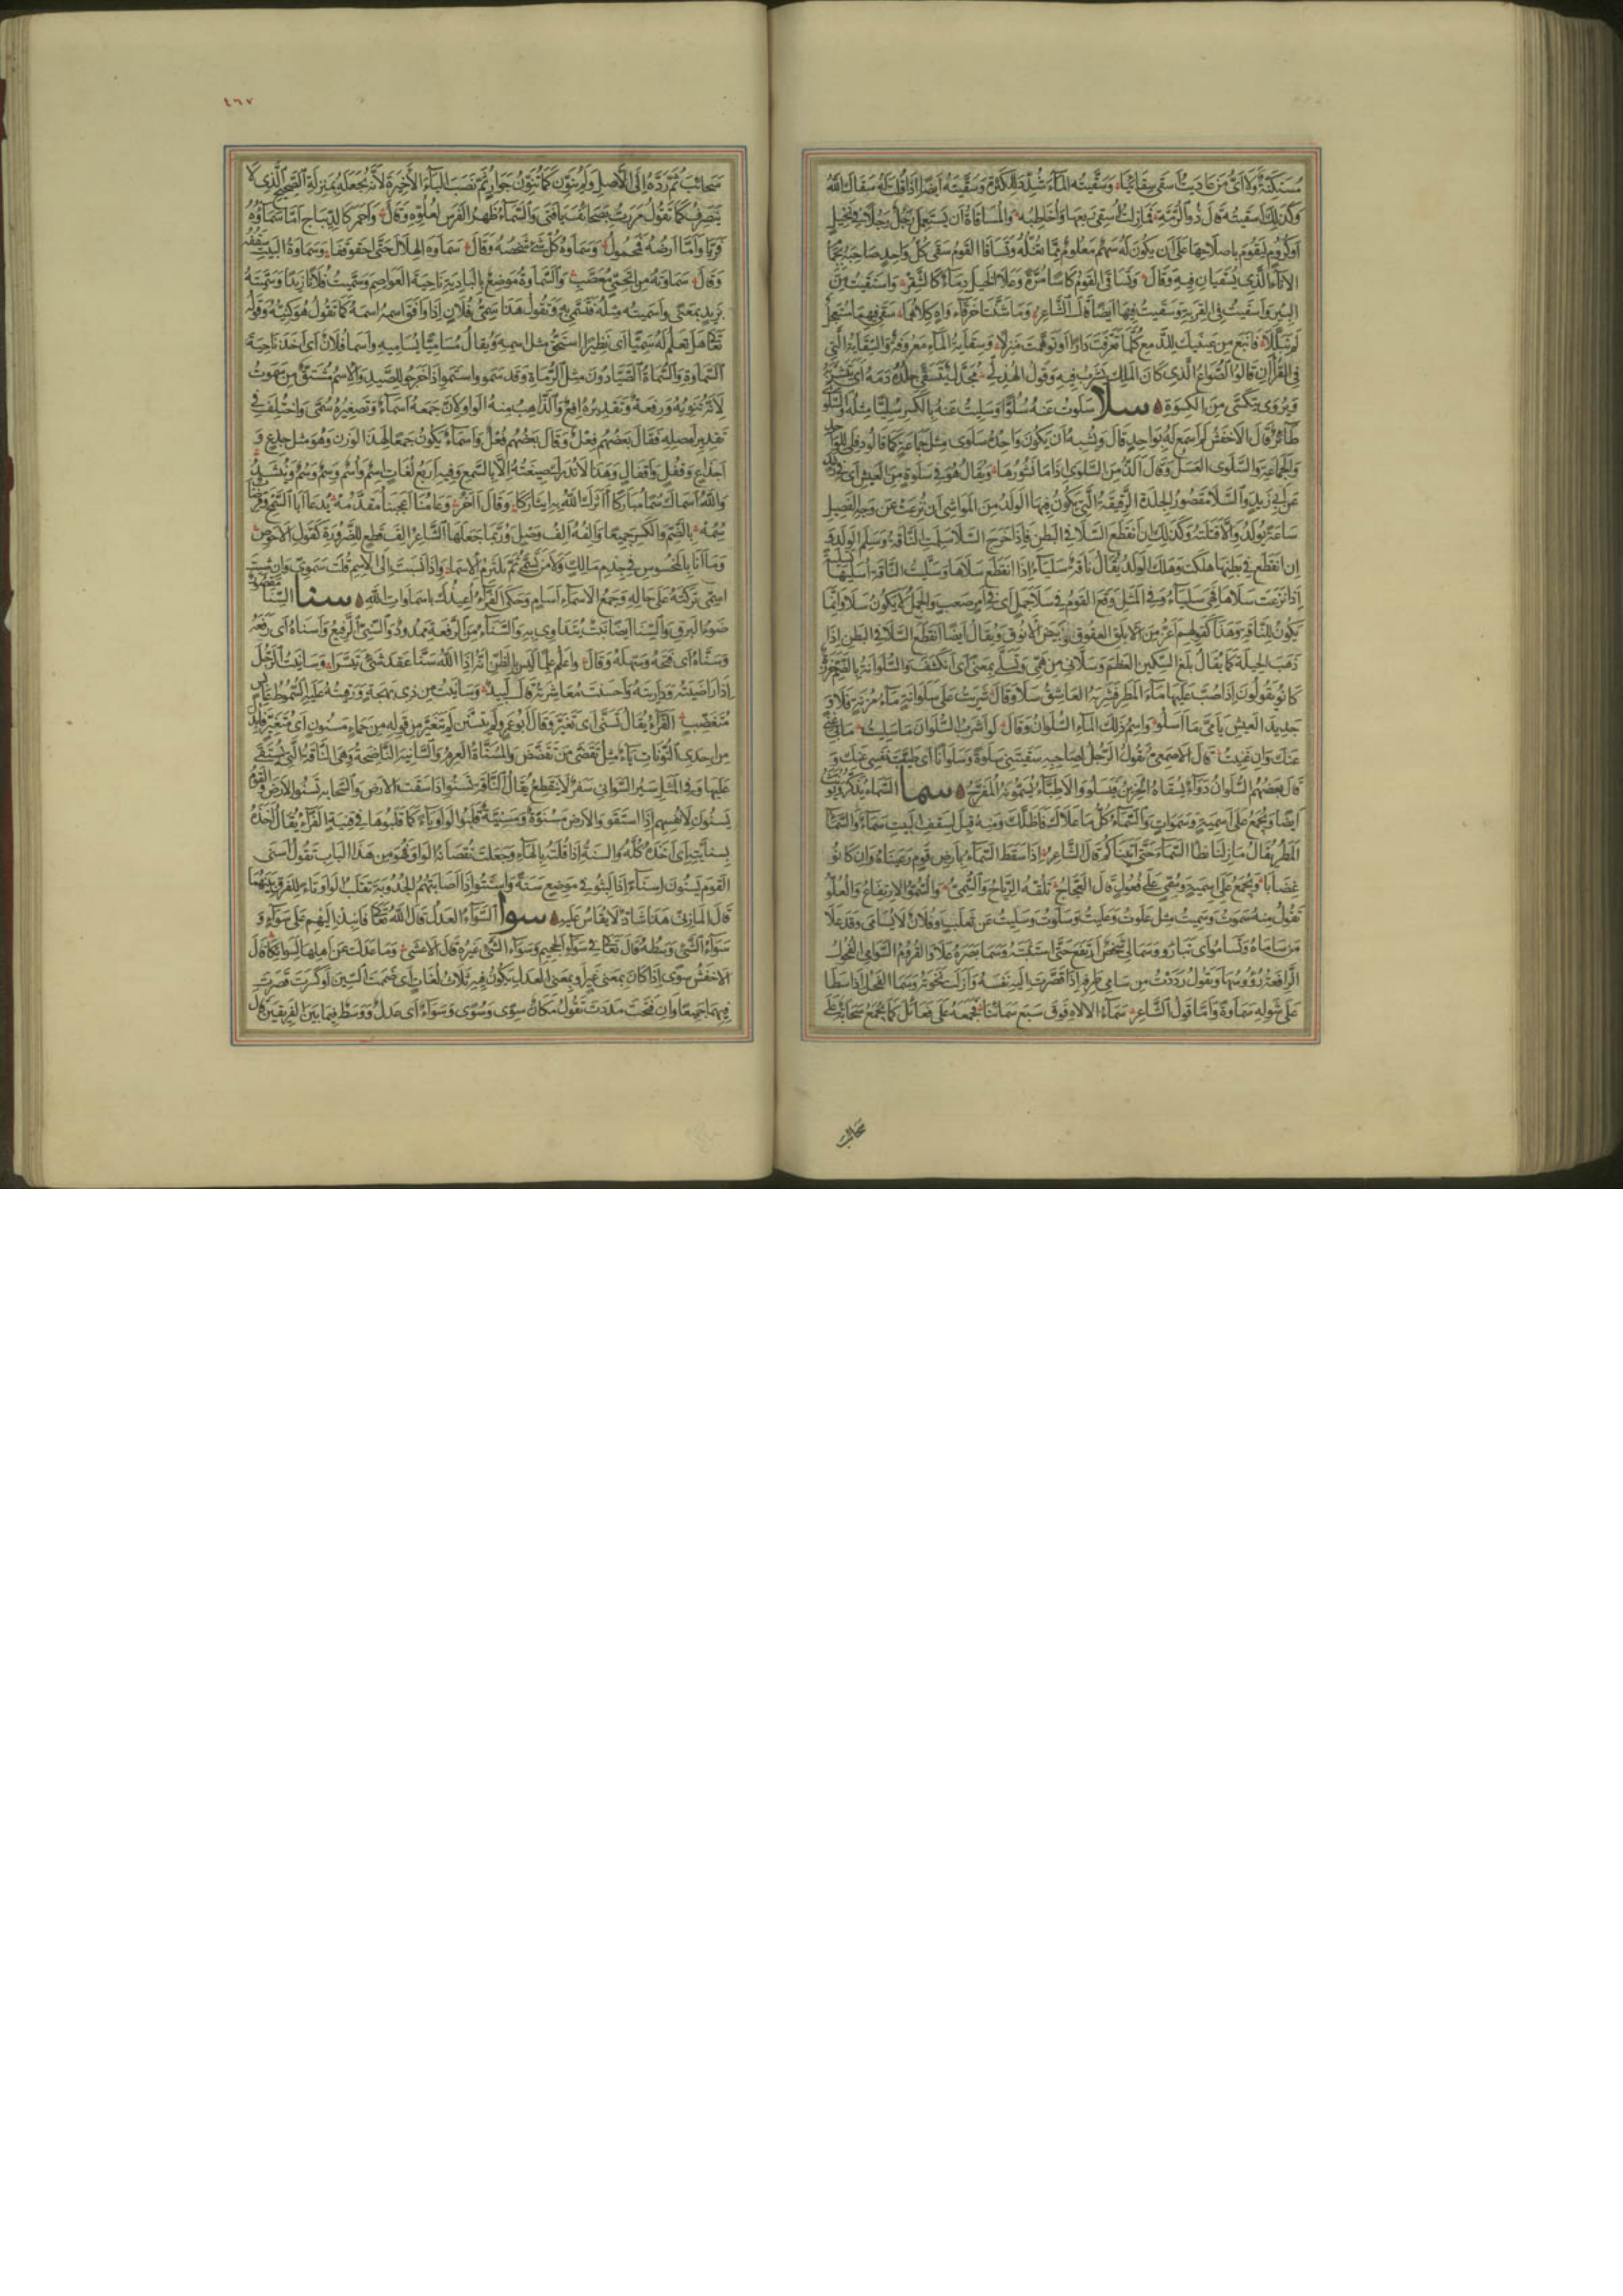 مستكنة ولا أى من عاديت أسقى سقائيا وسقيته الماء شدد للكثرة وسقيته أيضا اذا قلت له سقاك الله
وكذلك أسقيته قال ذو الرمة فما زلت أسقى ربعها وأخاطبه والمساقاة أن يستعمل رجل رجلا فى نخيل
أو كروم ليقوم باصلاحها على أن يكون له سهم معلوم مما تغله وتساقا القوم سقى كل واحد صاحبه بجمام
الاناء الذى يسقيان فيه وقال وتساقى القوم كاسا مرة وعلا الخيل دماء كالشقر واستقيت من
البئر وأسقيت فى القربة وسقيت فيها أيضا قال الشاعر وما شنتا خرقاء واه كلاهما سقى فيهما مستعجل
لم تبللا فأنبع من عينيك للدمع كلما تعرفت دارا أو توهمت منزلا وسقاية الماء معروفة والسقاية التى
فى القرآن قالوا الصواع الذى كان الملك يشرب فيه وقول الهذلى مجدل يتسقى جلده دمه أى يتشربه
ويروى يتكسى من الكسوة سلا سلوت عنه سلوا وسليت عنه بالكسر سليا مثله والسلوى
طائر قال الأخفش لم أسمع له بواحد قال ويشبه أن يكون واحده سلوى مثل جماعته كما قالوا دفلى للواحد
والجماعة والسلوى العسل وقال ألذ من السلوى اذا ما نشورها ويقال هو فى سلوة من العيش أى فى رغد
عن أبى زيد والسلا مقصور الجلدة الرقيقة التى يكون فيها الولد من المواشى ان نزعت عن وجه الفصيل
ساعة يولد والا قتلته وكذلك ان انقطع السلا فى البطن فاذا خرج السلا سلمت الناقة وسلم الولد و
ان انقطع فى بطنها هلكت وهلك الولد يقال ناقة سلياء اذا انقطع سلاها وسليت الناقة أسليها تسلية
اذا نزعت سلاها فهى سلياء وفى المثل وقع القوم فى سلا جمل أى فى أمر صعب والجمل لا يكون له سلا وانما
يكون للناقة وهذا كقولهم أعز من الأبلق العقوق وبيض الأنوق ويقال أيضا انقطع السلا فى البطن اذا
ذهب الحيلة كما يقال بلغ السكين العظم وسلانى من همى وتسلى بمعنى أى انكشف والسلوانة بالضم خرزة
كانو يقولون اذا صب عليها ماء المطر فشربه العاشق سلا وقال شربت على سلوانة ماء مزنة فلا و
جديد العيش يا مى ما أسلو واسم ذلك الماء السلوان وقال لو أشرب السلوان ما سليت ما بى غنى
عنك وان غنيت قال الأصمعى يقول الرجل لصاحبه سقيتنى سلوة وسلوانا أى طيبت نفسى عنك و
قال بعضهم السلوان دواء يسقاه الحزين فيسلو والأطباء يسمونه المفرح سما السماء يذكر ويؤنث
أيضا ويجمع على أسمية وسموات والسماء كل ما علاك فأظلك ومنه قيل لسقف البيت سماء والسماء
المطر يقال ما زلنا نطأ السماء حتى أتيناكم قال الشاعر اذا سقط السماء بأرض قوم رعيناه وان كانو
غضابا ويجمع على أسمية وسمى على فعول قال العجاج تلفه الرياح والسمى والسمو الارتفاع والعلو
تقول منه سموت وسميت مثل علوت وعليت وسلوت وسليت عن ثعلب وفلان لا يسامى وقد علا
من ساماه وتساموا أى تباروا وسما لى شخص ارتفع حتى استثبته وسما بصره علا والقروم السوامى الفحول
الرافعة رؤسها وتقول رددت من سامى طرفه اذا قصرت اليه نفسه وأزلت نخوته وسما الفحل اذا سطا
على شوله سماوة وأما قول الشاعر سماء الاله فوق سبع سمائيا فجمعه على فعائل كما يجمع سحابة على
سحائب
٤٦٧
سحائب ثم رده الى الأصل ولم ينون كما تنون جوار ثم نصب الياء الأخيرة لأنه جعله بمنزلة الصحيح الذى لا
ينصرف كما تقول مررت بصحائف يا فتى والسماء ظهر الفرس لعلوه وقال وأحمر كالديباج أما سماؤه
فريا وأما أرضه فمحول وسماوة كل شئ شخصه وقال سماوة الهلال حتى احقوقفا وسماوة البيت سقفه
وقال سماوته من أتحمى معصب والسماوة موضع بالبادية ناحية العواصم وسميت فلانا زيدا وسميته
بزيد بمعنى وأسميته مثله فتسمى به وتقول هذا سمى فلان اذا وافق اسمه اسمه كما تقول هو كنيه وقوله
تعالى هل تعلم له سميا أى نظيرا استحق مثل اسمه ويقال مساميا يساميه وأسما فلان أى أخذ ناحية
السماوة والسماة الصيادون مثل الرماة وقد سموا واستموا اذا خرجو للصيد والاسم مشتق من سموت
لأنه تنويه ورفعة وتقديره افع والذاهب منه الواو لأن جمعه أسماء وتصغيره سمى واختلف فى
تقدير أصله فقال بعضهم فعل وقال بعضهم فعل وأسماء يكون جمعا لهذا الوزن وهو مثل جذع و
أجذاع وقفل وأقفال وهذا لا تدرك صيغته الا بالسمع وفيه أربع لغات اسم وأسم وسم وسم وينشد
والله أسماك سما مباركا آثرك الله به ايثاركا وقال آخر وعامنا أعجبنا مقدمه يدعا أبا السمح وقرضاب
سمه بالضم والكسر جميعا وألفه ألف وصل وربما جعلها الشاعر ألف قطع للضرورة كقول الأحوص
وما أنا بالمخسوس فى جذم مالك ولا من تسمى ثم يلتزم الاسما واذا نسبت الى الاسم قلت سموى وان شئت
اسمى تركته على حاله وجمع الأسماء أسام وحكى الفراء أعيذك بأسماوات الله سنا السنا مقصور
ضوء البرق والسنا أيضا نبت يتداوى به والسناء من الرفعة ممدود والسنى الرفيع وأسناه أى رفعه
وسناه أى فتحه وسهله وقال وأعلم علما ليس بالظن أنه اذا الله سنا عقد شئ تيسرا وسانيت الرجل
اذا راضيته وداريته وأحسنت معاشرته قال لبيد وسانيت من ذى بهجة ورقيته عليه السموط عابس
متغضب الفراء يقال تسنى أى تغير وقال أبو عمرو لم يتسن لم يتغير من قوله من حمأ مسنون أى متغير فأبدل
من احدى النونات ياء مثل تقضى من تقضض والمسناة العرم والسانية الناضحة وهى الناقة التى يستقى
عليها وفى المثل سير السوانى سفر لا ينقطع يقال الناقة تسنو اذا سقت الأرض والسحابة تسنو الأرض والقوم
يسنون لأنفسهم اذا استقو والأرض مسنوة ومسنية قلبوا الواو ياء كما قلبوها فى قنية الفراء يقال أخذه
بسنايته أى أخذه كله والسنة اذا قلته بالهاء وجعلت نقصانه الواو فهو من هذا الباب تقول أسنى
القوم يسنون اسناء اذا لبثو فى موضع سنة وأسنتوا اذا أصابتهم الجدوبة تقلب الواو تاء للفرق بينهما
قال المازنى هذا شاذ لا يقاس عليه سوا السواء العدل قال الله تعالى فانبذ اليهم على سواء و
سواء الشئ وسطه قال تعالى فى سواء الجحيم وسواء الشئ غيره قال الأعشى وما عدلت عن أهلها لسوائكا قال
الأخفش سوى اذا كان بمعنى غير أو بمعنى العدل يكون فيه ثلاث لغات أى ضممت السين أو كسرت قصرت
فيهما جميعا وان فتحت مددت تقول مكان سوى وسوى وسواء أى عدل ووسط فيما بين الفريقين قال